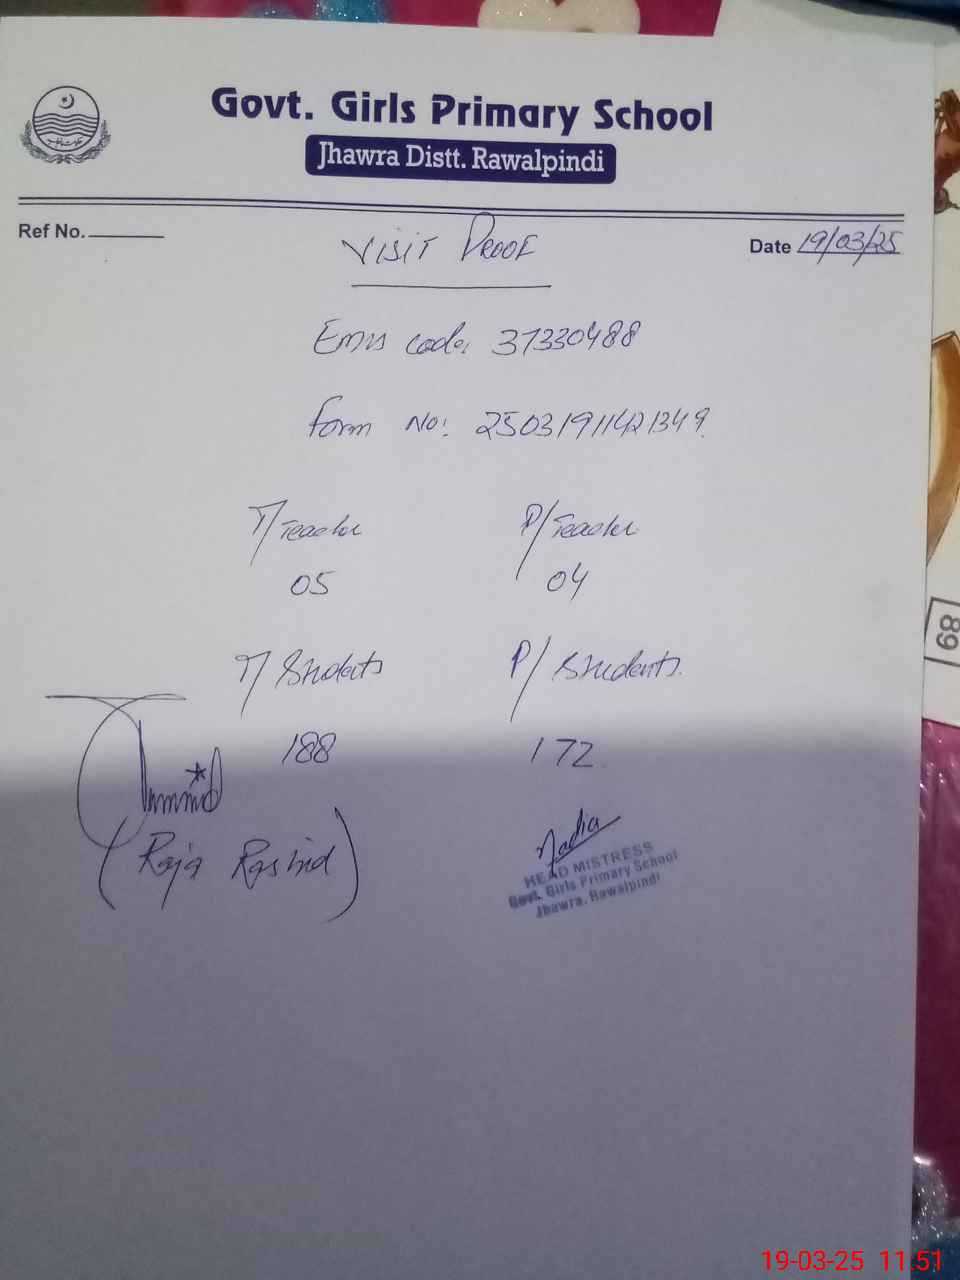 Govt. Girls Primary School
Jhawra Distt. Rawalpindi
Ref No.
Date 19/03/25
VISIT PROOF
Emis code: 37330488
Form No: 25031911421349
T/Teacher P/Teacher
05 04
T/Students P/Students
188 172
(Raja Rashid)
Nadia
HEAD MISTRESS
Govt. Girls Primary School
Jhawra, Rawalpindi
89
19-03-25 11.51